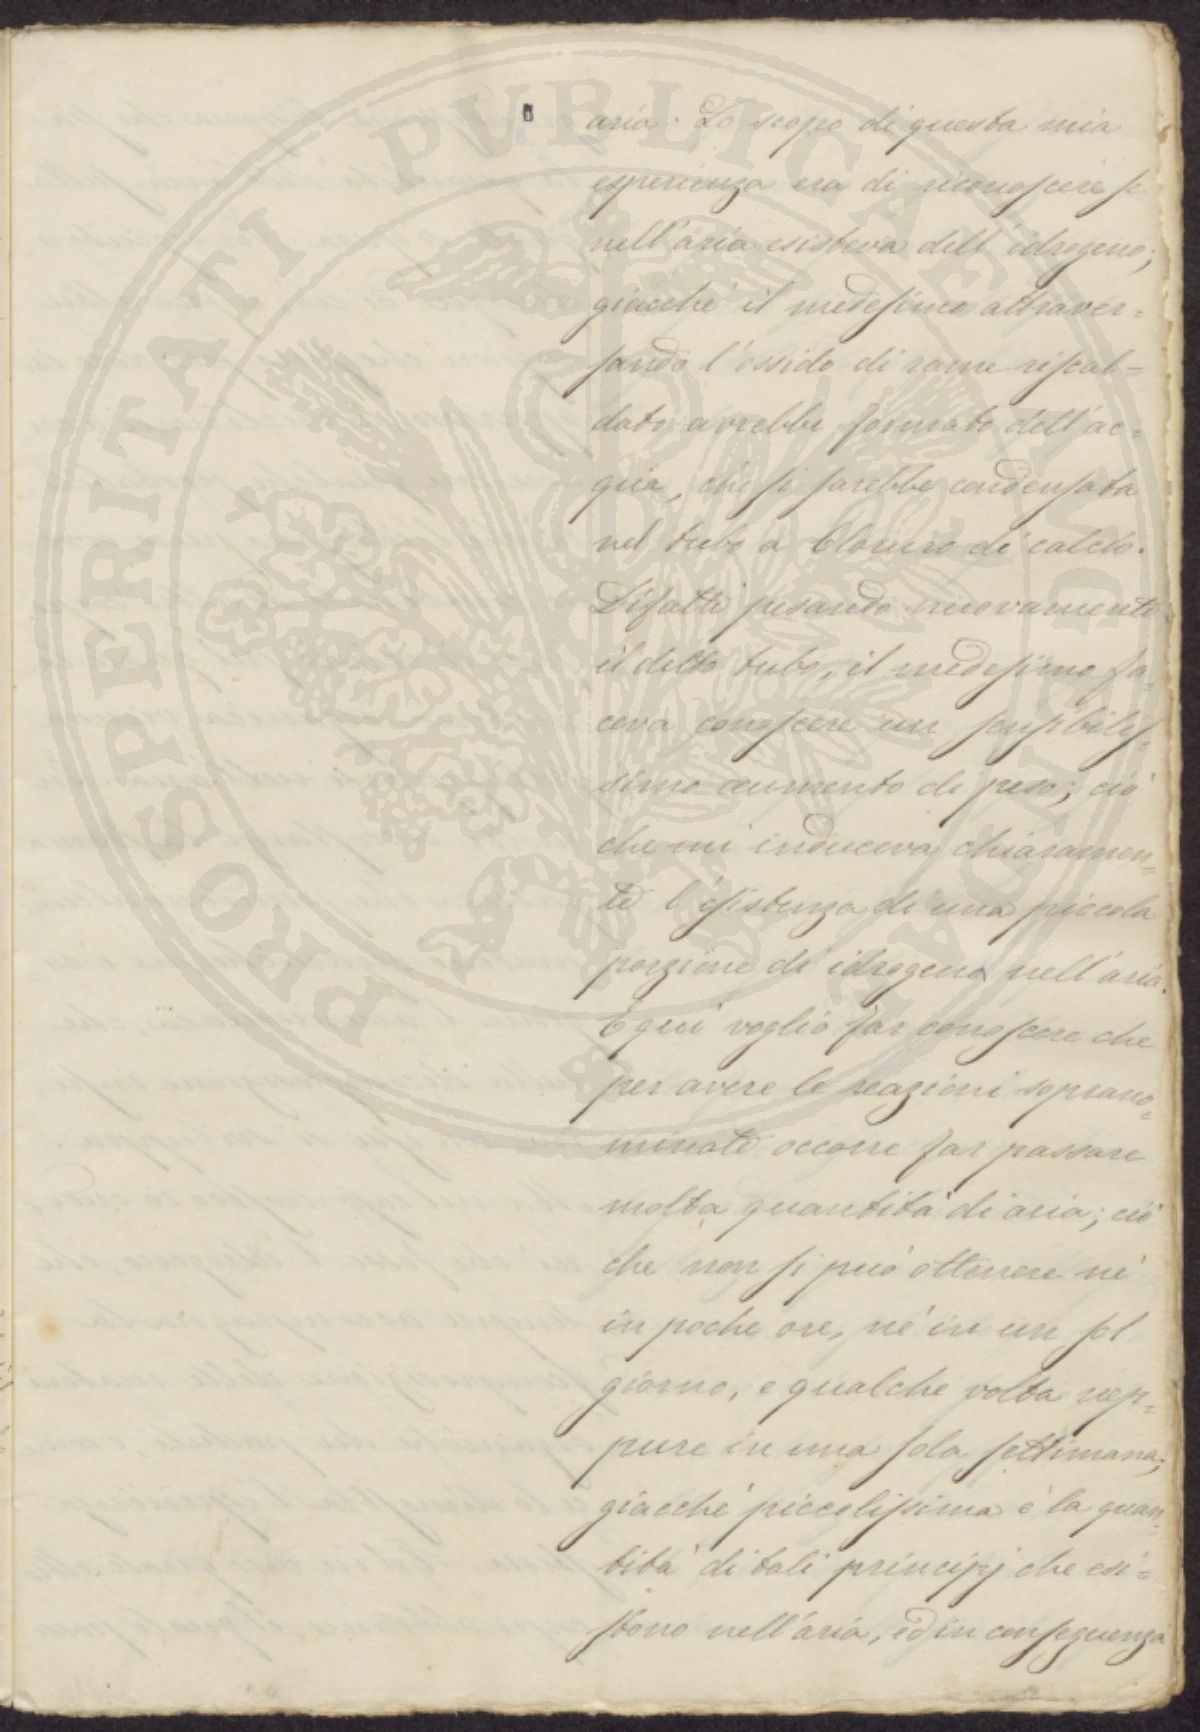 PROSPERITATI PUBLICAE AUGENDAE
aria. Lo scopo di questa mia
esperienza era di riconoscere se
nell'aria esisteva dell'idrogeno;
giacchè il medesimo attraver=
sando l'ossido di rame riscal=
dato avrebbe formato dell'ac=
qua, che si sarebbe condensata
nel tubo a Cloruro di calcio.
Difatti pesando nuovamente
il detto tubo, il medesimo fa=
ceva conoscere un sensibilis=
simo aumento di peso; ciò
che mi induceva chiaramen=
te l'esistenza di una piccola
porzione di idrogeno nell'aria.
E quì voglio far conoscere che
per avere le reazioni soprano=
minate occorre far passare
molta quantità di aria; ciò
che non si può ottenere nè
in poche ore, nè in un sol
giorno, e qualche volta nep=
pure in una sola settimana;
giacchè piccolissima è la quan=
tità di tali principj che esi=
stono nell'aria, ed in conseguenza